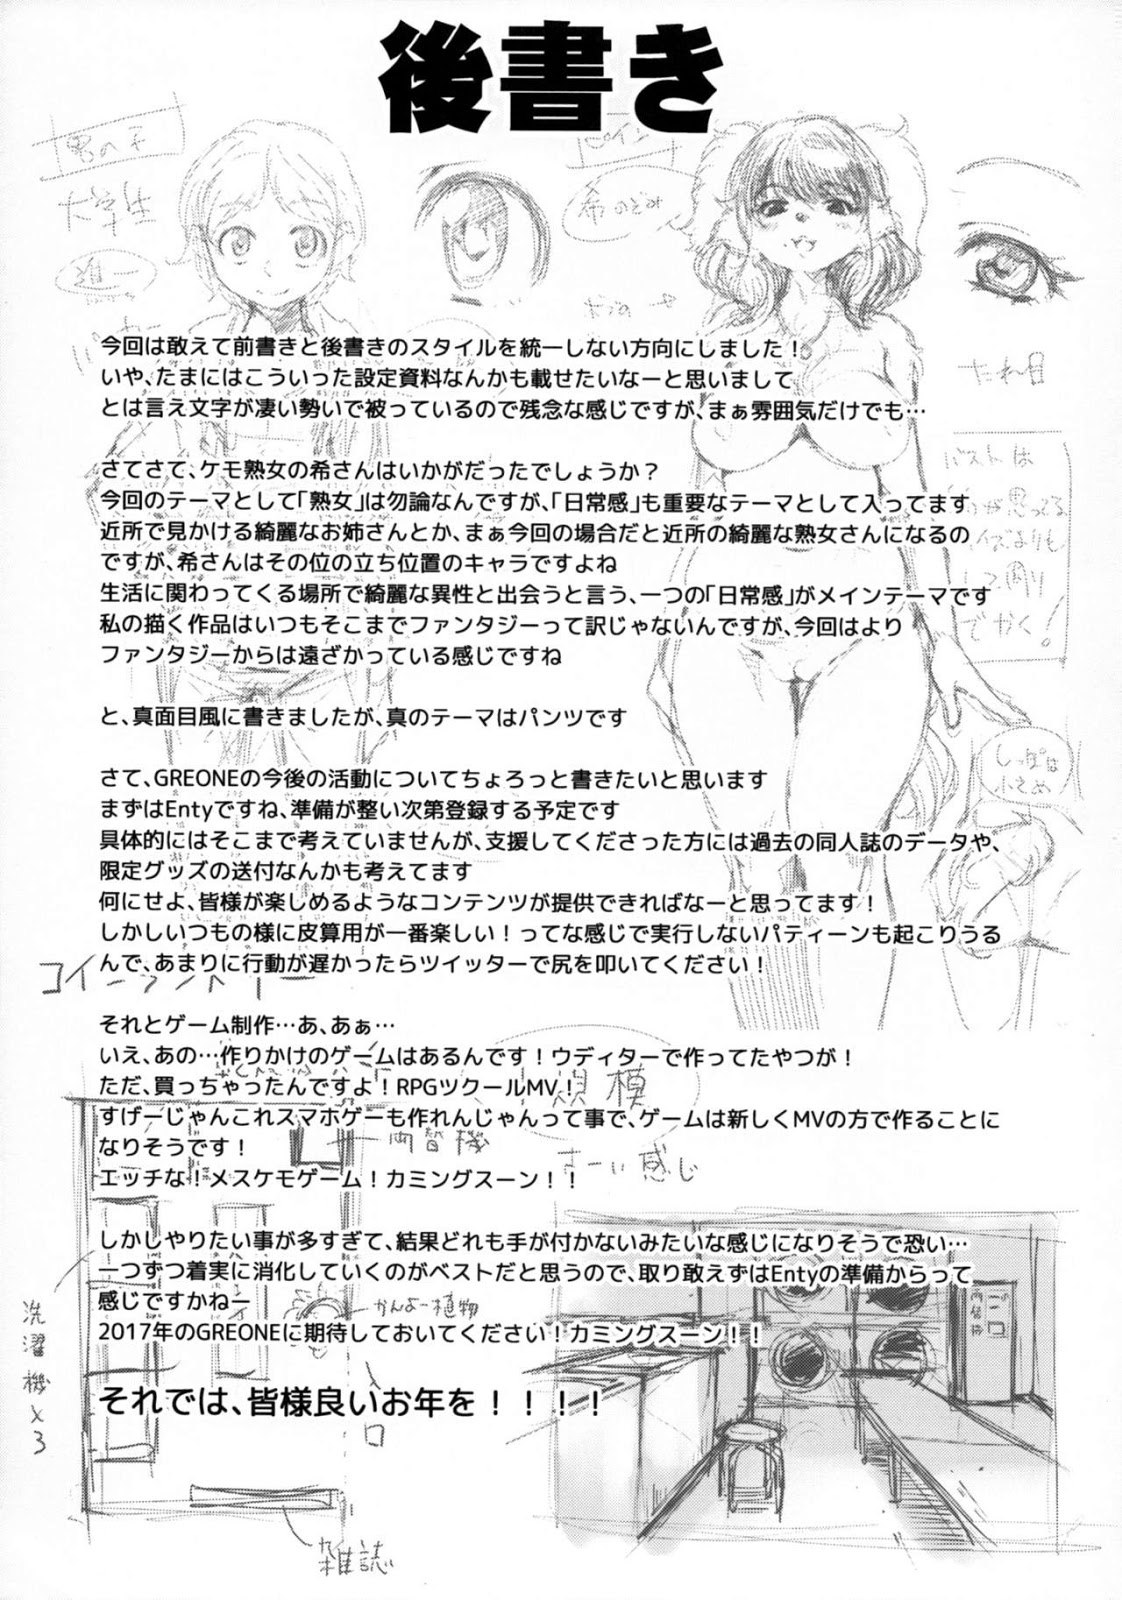 後書き
男の子
大学生
進一
希のぞみ
たれ目
今回は敢えて前書きと後書きのスタイルを統一しない方向にしました！
いや、たまにはこういった設定資料なんかも載せたいなーと思いまして
とは言え文字が凄い勢いで被っているので残念な感じですが、まぁ雰囲気だけでも…
さてさて、ケモ熟女の希さんはいかがだったでしょうか？
今回のテーマとして「熟女」は勿論なんですが、「日常感」も重要なテーマとして入ってます
近所で見かける綺麗なお姉さんとか、まぁ今回の場合だと近所の綺麗な熟女さんになるの
ですが、希さんはその位の立ち位置のキャラですよね
生活に関わってくる場所で綺麗な異性と出会うと言う、一つの「日常感」がメインテーマです
私の描く作品はいつもそこまでファンタジーって訳じゃないんですが、今回はより
ファンタジーからは遠ざかっている感じですね
と、真面目風に書きましたが、真のテーマはパンツです
バストは
でかく！
しっぽは
小さめ
さて、GREONEの今後の活動についてちょろっと書きたいと思います
まずはEntyですね、準備が整い次第登録する予定です
具体的にはそこまで考えていませんが、支援してくださった方には過去の同人誌のデータや、
限定グッズの送付なんかも考えてます
何にせよ、皆様が楽しめるようなコンテンツが提供できればなーと思ってます！
しかしいつもの様に皮算用が一番楽しい！ってな感じで実行しないパティーンも起こりうる
んで、あまりに行動が遅かったらツイッターで尻を叩いてください！
コインランドリー
それとゲーム制作…あ、あぁ…
いえ、あの…作りかけのゲームはあるんです！ウディターで作ってたやつが！
ただ、買っちゃったんですよ！RPGツクールMV！
すげーじゃんこれスマホゲーも作れんじゃんって事で、ゲームは新しくMVの方で作ることに
なりそうです！
エッチな！メスケモゲーム！カミングスーン！！
規模
小さーい感じ
両替機
しかしやりたい事が多すぎて、結果どれも手が付かないみたいな感じになりそうで恐い…
一つずつ着実に消化していくのがベストだと思うので、取り敢えずはEntyの準備からって
感じですかねー
2017年のGREONEに期待しておいてください！カミングスーン！！
かんよー植物
洗濯機×3
それでは、皆様良いお年を！！！！
入口
雑誌
両替機